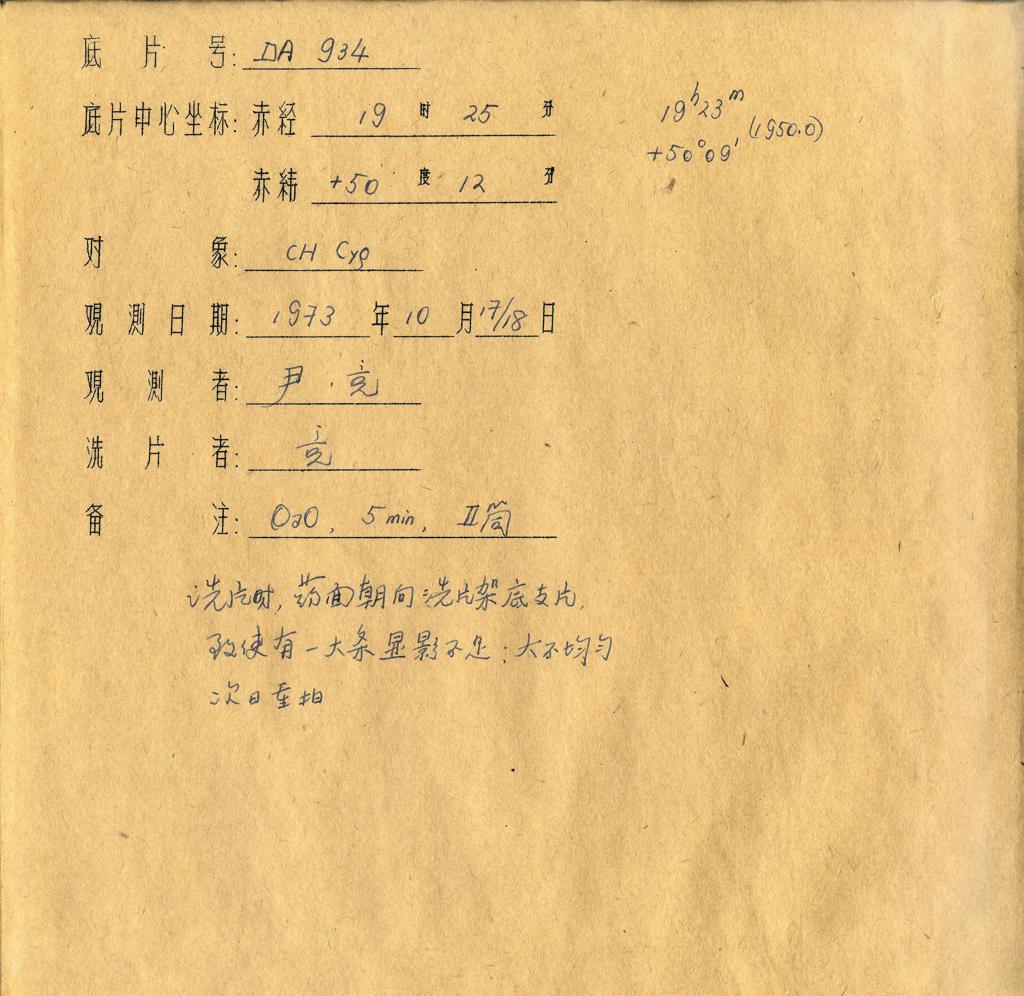 底片号: DA 934
底片中心坐标: 赤经 19 时 25 分
19h23m (1950.0)
+50°09'
赤纬 +50 度 12 分
对象: CH Cyg
观测日期: 1973 年 10 月 17/18 日
观测者: 尹·竞
洗片者: 竞
备注: OaO, 5 min, II筒
洗片时, 药面朝向洗片架底支片,
致使有一大条显影不足; 大不均匀
次日重拍